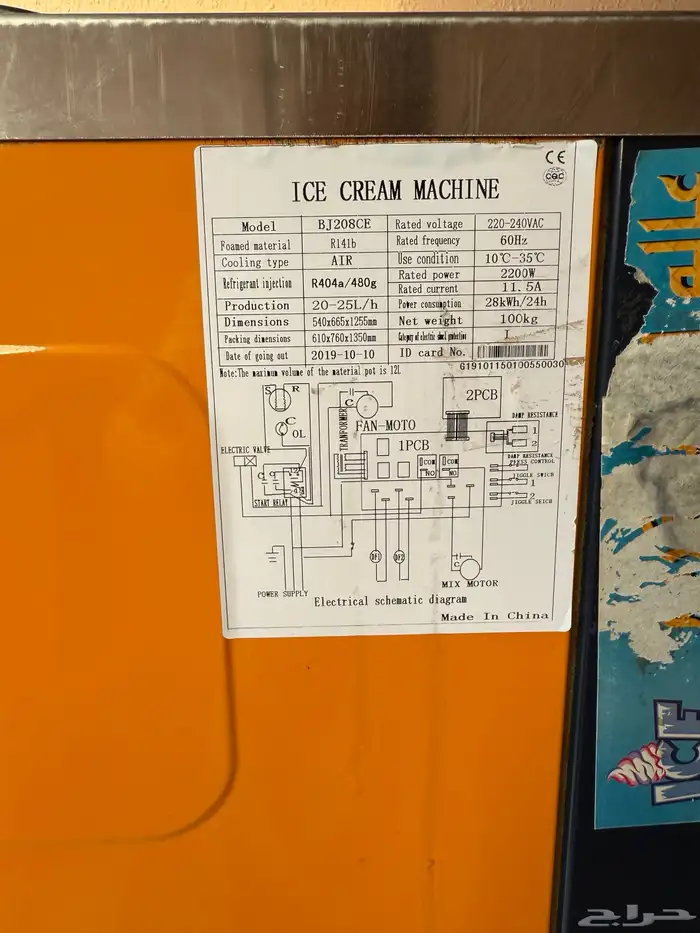 CE
CQC
ICE CREAM MACHINE
Model BJ208CE Rated voltage 220-240VAC
Foamed material R141b Rated frequency 60Hz
Cooling type AIR Use condition 10℃-35℃
Refrigerant injection R404a/480g Rated power 2200W
Rated current 11.5A
Production 20-25L/h Power consumption 28kWh/24h
Dimensions 540x665x1255mm Net weight 100kg
Packing dimensions 610x760x1350mm Category of electric shock protection I
Date of going out 2019-10-10 ID card No.
G19101150100550030
Note:The maxinun volume of the material pot is 12L
S R
C
2PCB
C
OL
TRANFORMER
FAN-MOTO
DAMP RESISTANCE
1
2
1PCB
ELECTRIC VALVE
COM
NO
COM
NO
DAMP RESISTANCE
PRESS CONTROL
JIGGLE SWICH
1
2
JIGGLE SEICH
START RELAY
DF1
DF2
C
MIX MOTOR
POWER SUPPLY
Electrical schematic diagram
Made In China
عالم
ICE
حراج